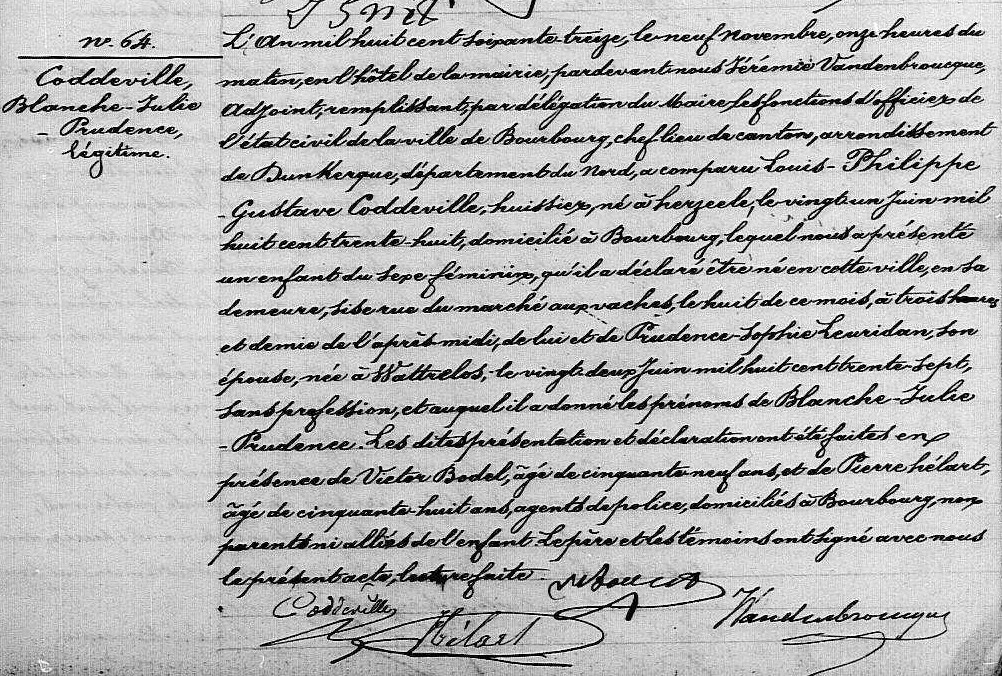 n.° 64.
Coddeville,
Blanche-Julie
-Prudence,
légitime.
L'An mil huit cent soixante-treize, le neuf Novembre, onze heures du
matin, en l'hôtel de la mairie, pardevant nous Jérémie Vandenbroucque,
Adjoint, remplissant, par délégation du Maire les fonctions d'officier de
l'état civil de la ville de Bourbourg, chef lieu de canton, arrondissement
de Dunkerque, département du Nord, a comparu Louis-Philippe
-Gustave Coddeville, huissier, né à herzeele, le vingt-un Juin mil
huit cent trente-huit, domicilié à Bourbourg, lequel nous a présenté
un enfant du sexe féminin, qu'il a déclaré être né en cette ville, en sa
demeure, sise rue du marché aux vaches, le huit de ce mois, à trois heures
et demie de l'après-midi, de lui et de Prudence-Sophie Leuridan, son
épouse, née à Wattrelos, le vingt-deux Juin mil huit cent trente-sept,
sans profession, et auquel il a donné les prénoms de Blanche-Julie
-Prudence. Les dites présentation et déclaration ont été faites en
présence de Victor Bodel, âgé de cinquante-neuf ans, et de Pierre hélart,
âgé de cinquante-huit ans, agents de police, domiciliés à Bourbourg, non
parents ni alliés de l'enfant. Le père et les témoins ont signé avec nous
le présent acte, lecture faite.
Coddeville
Hélart
Vandenbroucque